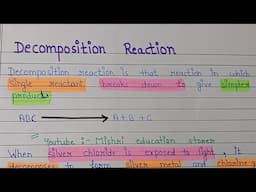 Decomposition Reaction
Decomposition reaction is that reaction in which
Single reactant breaks down to give Simpler
products
ABC → A + B + C
Youtube :- Mishri education store
When Silver chloride is exposed to light, it
decomposes to form silver metal and chlorine